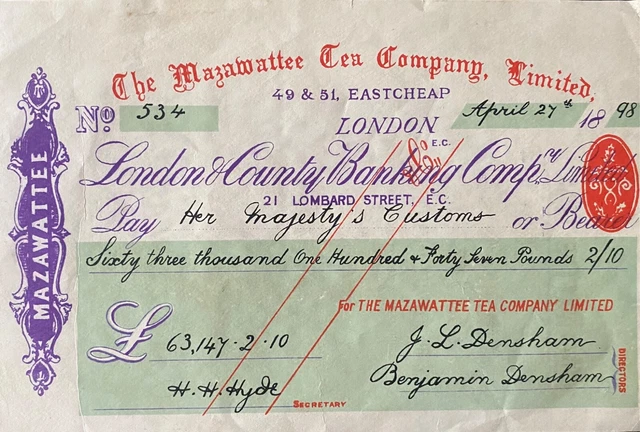 The Mazawattee Tea Company, Limited,
49 & 51, EASTCHEAP
Nº 534
April 27th 1898
LONDON E.C.
& Co
London & County Banking Compny Limited
21 LOMBARD STREET, E.C.
Pay Her Majesty's Customs or Bearer
Sixty three thousand One Hundred & Forty Seven Pounds 2/10
For THE MAZAWATTEE TEA COMPANY LIMITED
£ 63,147·2·10
J. L. Densham
Benjamin Densham
DIRECTORS
H. H. Hyde
SECRETARY
MAZAWATTEE